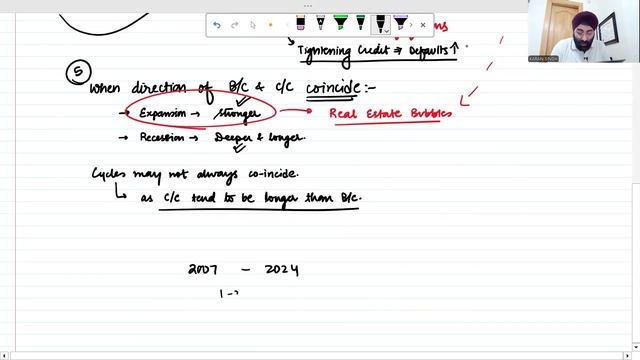 Tightening Credit ⇒ Defaults ↑
⑤
When direction of B/C & C/C coincide:-
→ Expansion → Stronger → Real Estate Bubbles
→ Recession → Deeper & longer.
Cycles may not always co-incide.
↳ as C/C tend to be longer than B/C.
2007 - 2024
KARAN SINGH